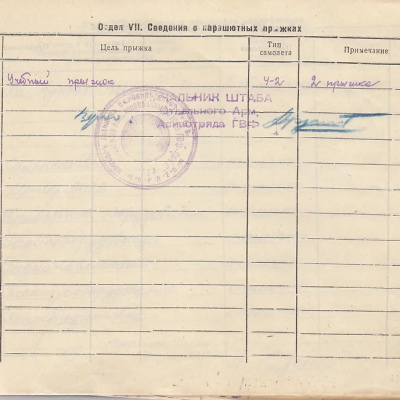 Отдел VII. Сведения о парашютных прыжках
Цель прыжка
Тип самолета
Примечание
Учебный прыжок
У-2
2 прыжка
НАЧАЛЬНИК ШТАБА
Отдельного Арм.
Авиаотряда ГВФ